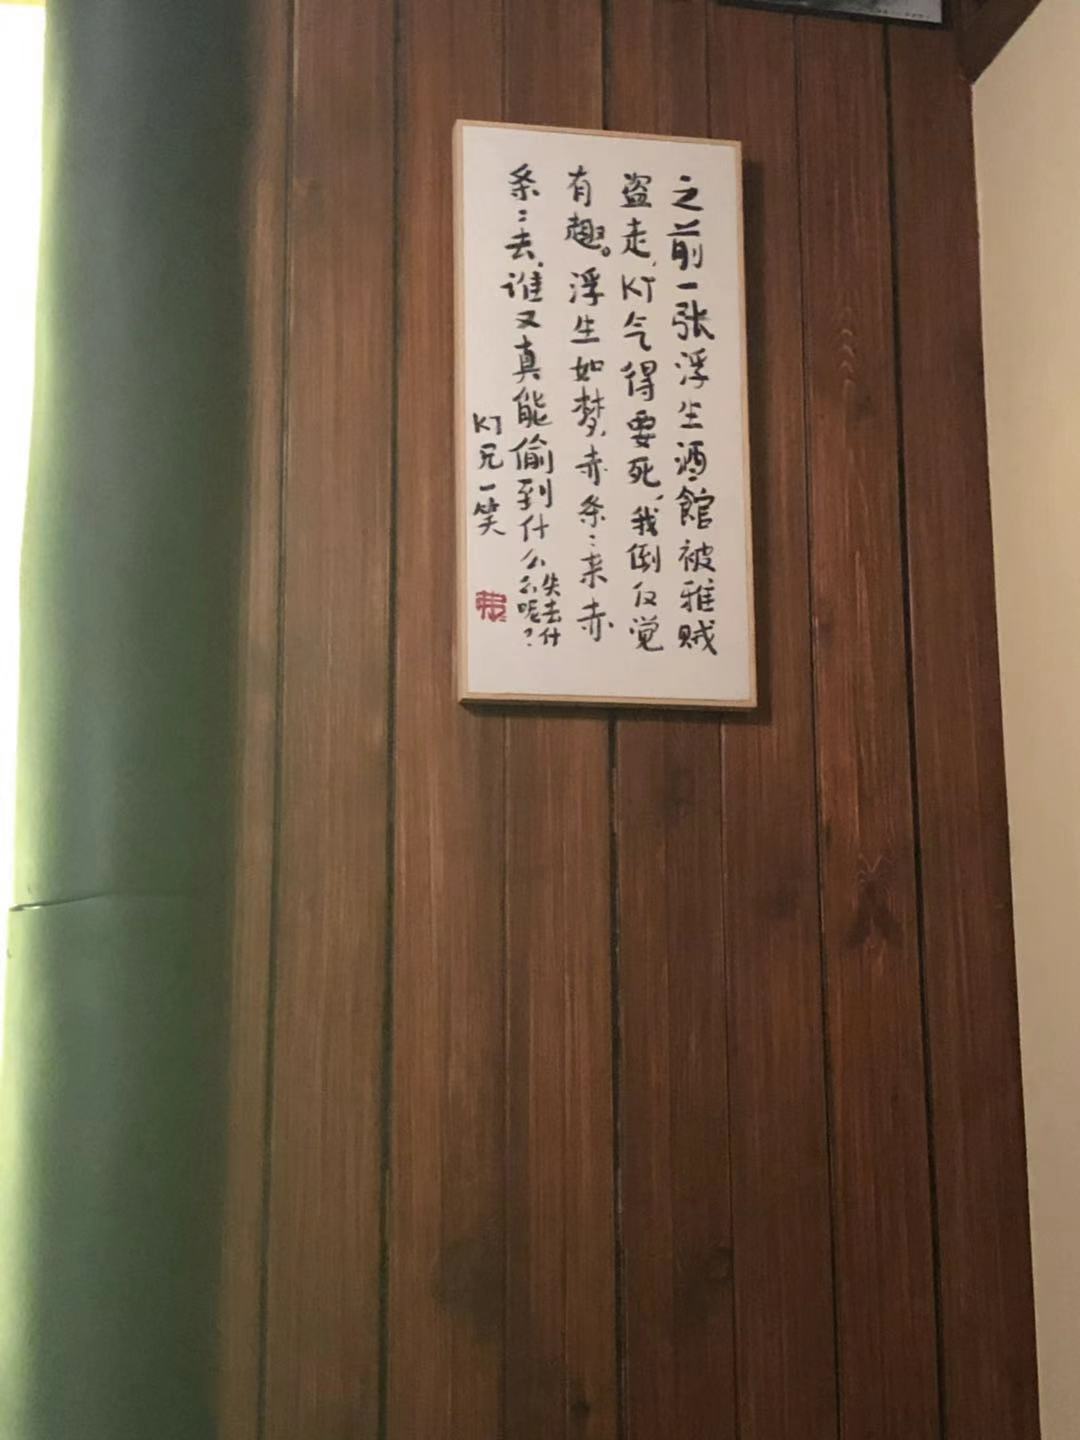 之前一张浮生酒館被雅贼
盗走,KJ气得要死,我倒仅觉
有趣。浮生如梦,赤条:来赤
条:去,谁又真能偷到什么失去什么呢?
KJ兄一笑